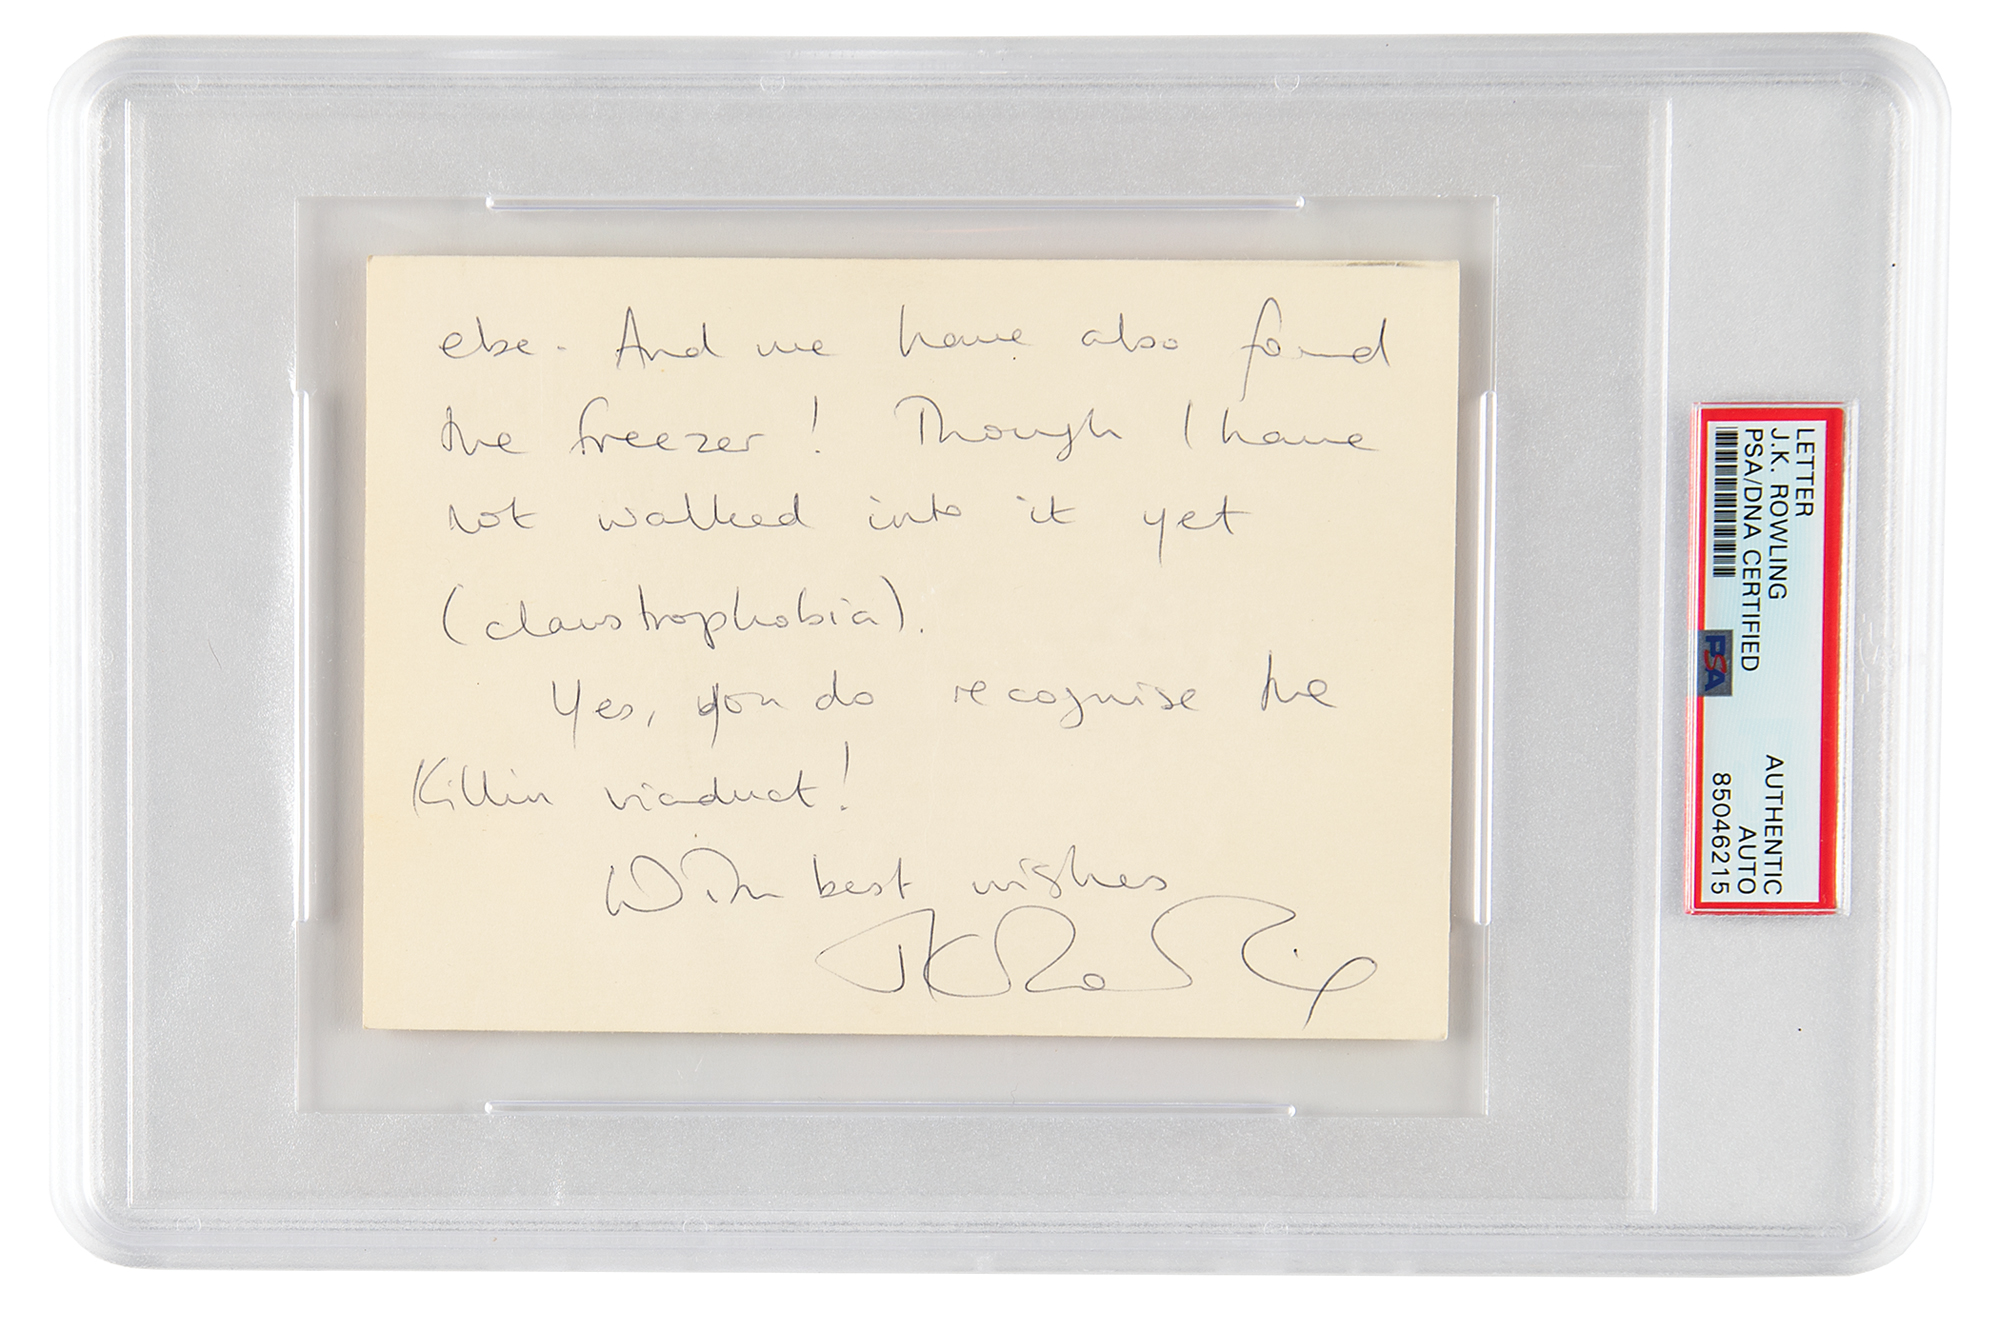 else. And we have also found
the freezer! Though I have
not walked into it yet
(claustrophobia).
Yes, you do recognise the
Killin viaduct!
With best wishes
JKRowling
LETTER
J.K. ROWLING
PSA/DNA CERTIFIED
PSA
AUTHENTIC
AUTO
85046215